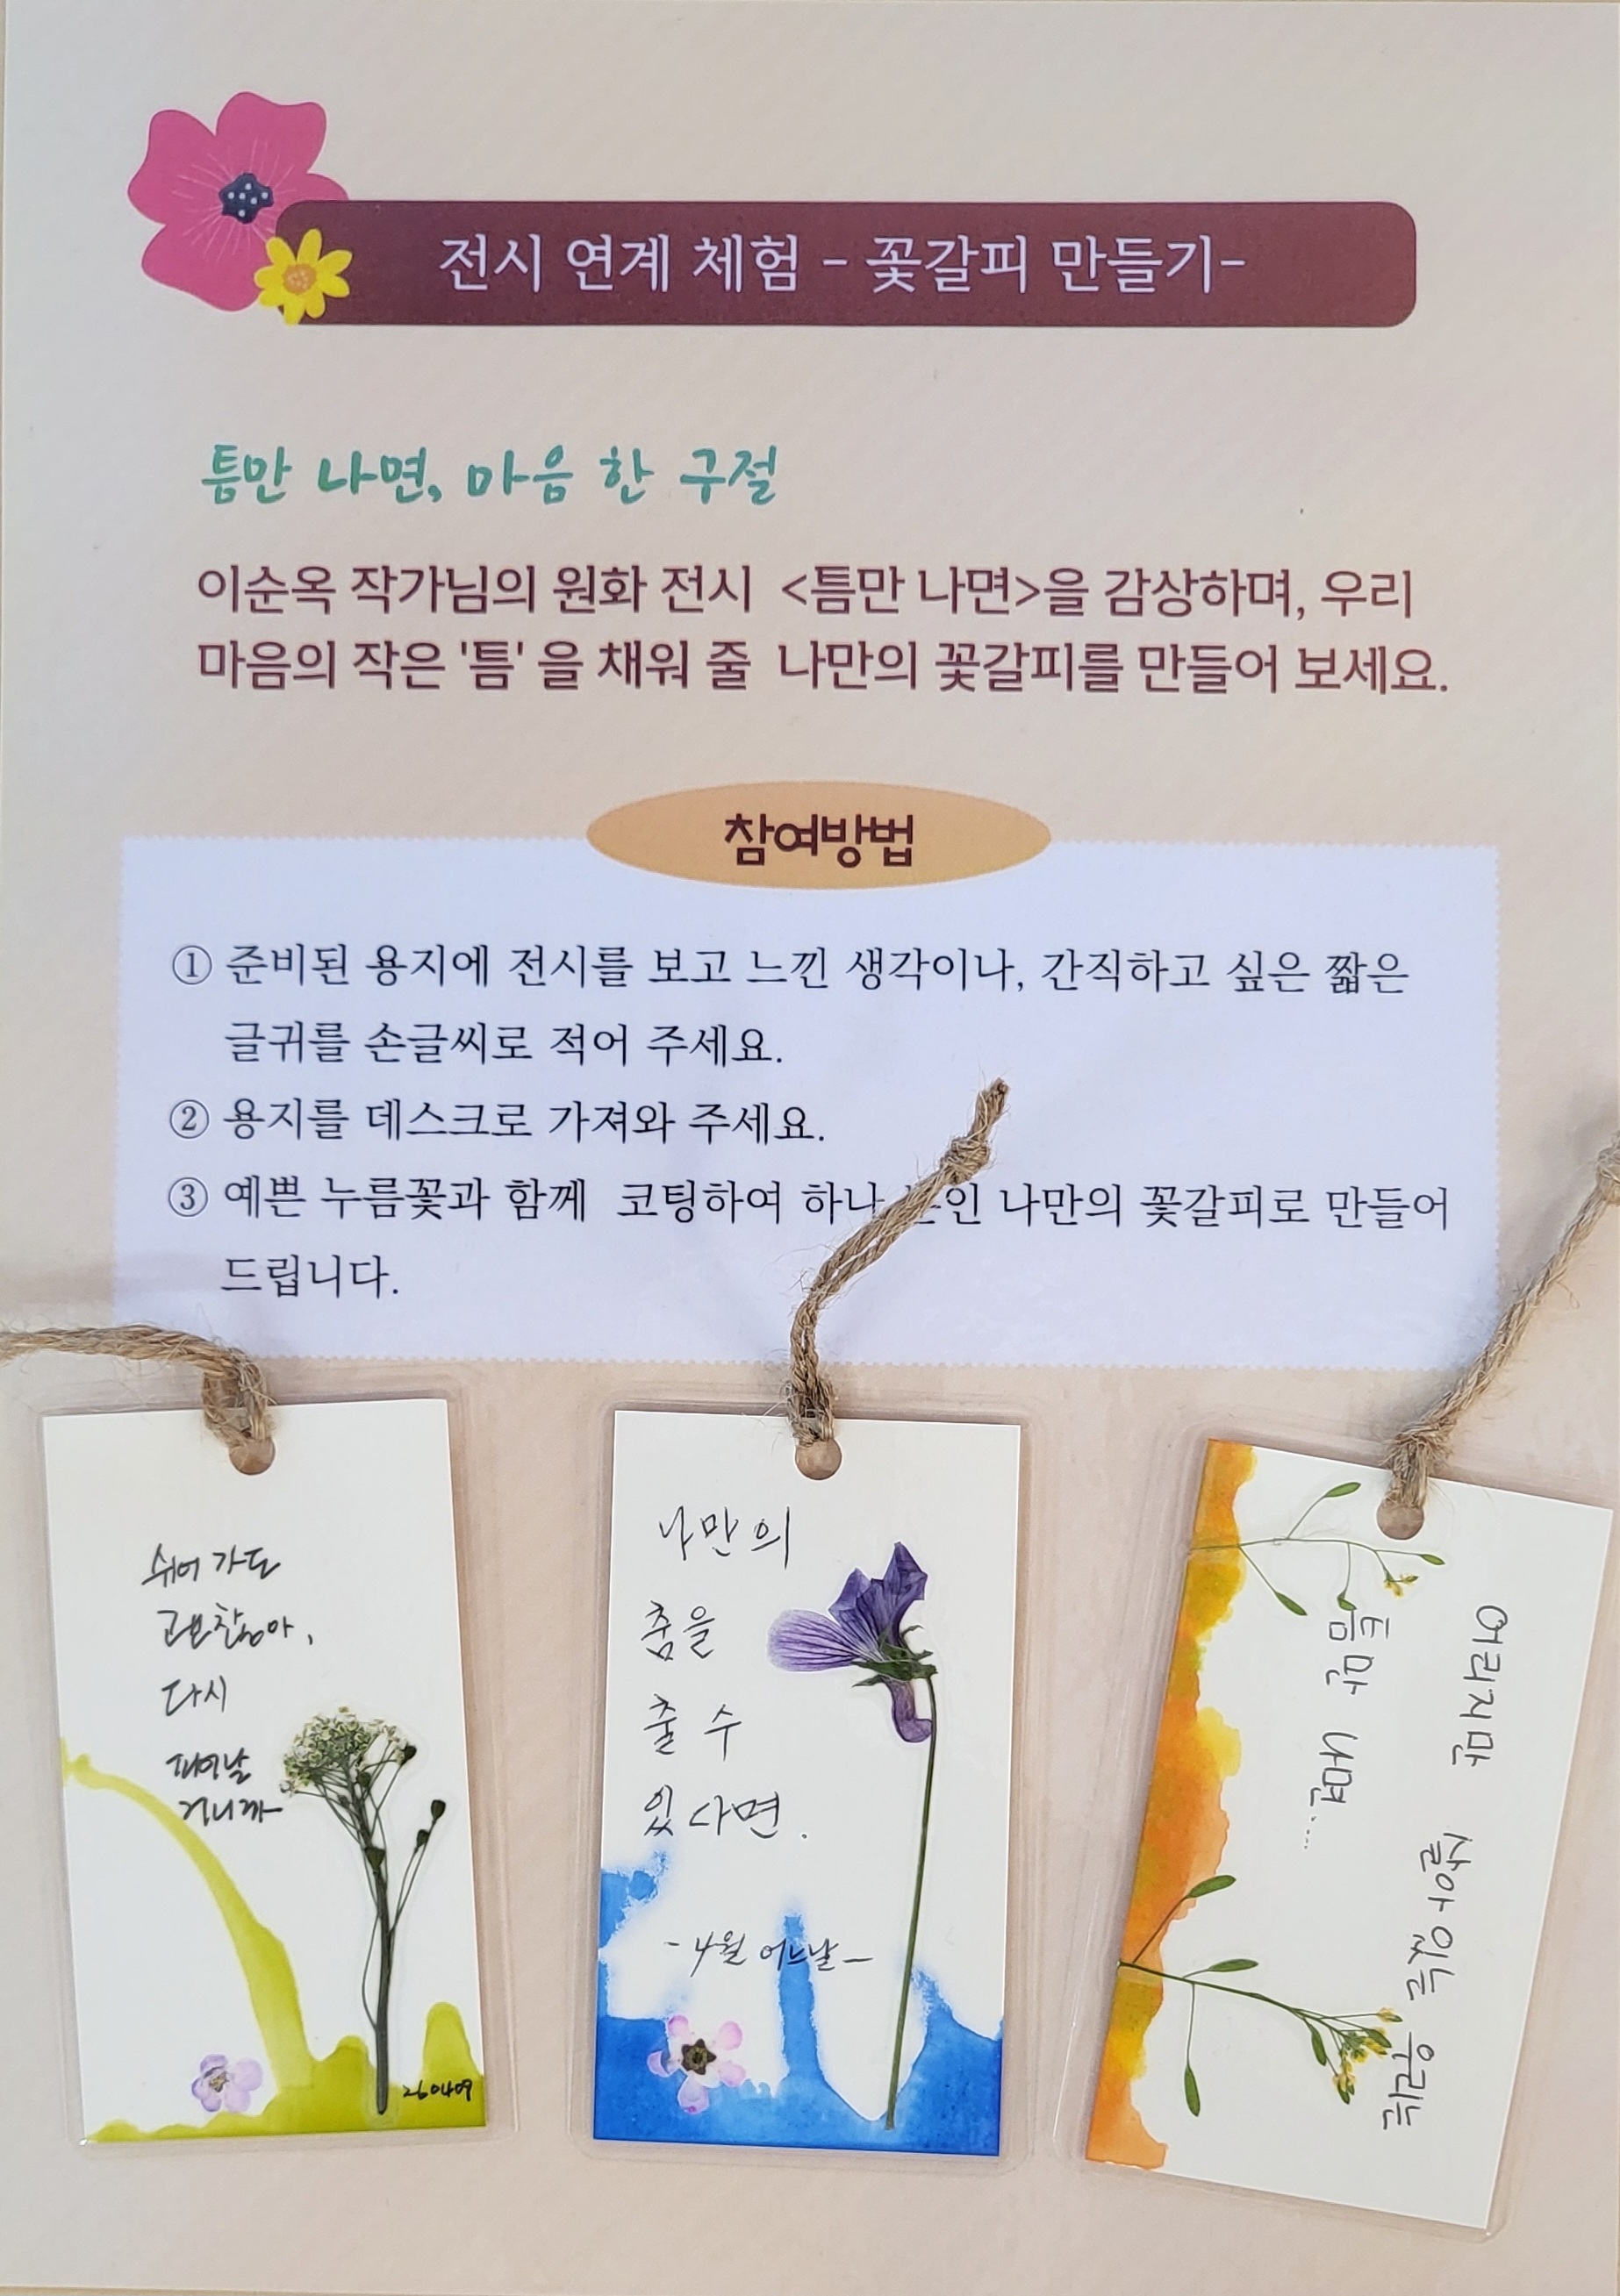 전시 연계 체험 - 꽃갈피 만들기-
틈만 나면, 마음 한 구절
이순옥 작가님의 원화 전시 <틈만 나면>을 감상하며, 우리
마음의 작은 '틈' 을 채워 줄 나만의 꽃갈피를 만들어 보세요.
참여방법
① 준비된 용지에 전시를 보고 느낀 생각이나, 간직하고 싶은 짧은
글귀를 손글씨로 적어 주세요.
② 용지를 데스크로 가져와 주세요.
③ 예쁜 누름꽃과 함께 코팅하여 하나 인 나만의 꽃갈피로 만들어
드립니다.
쉬어 가도
괜찮아,
다시
피어날
거니까
260409
나만의
춤을
출 수
있다면.
-4월 어느날-
여리지만 살아 있는 우리는
틈만 나면....